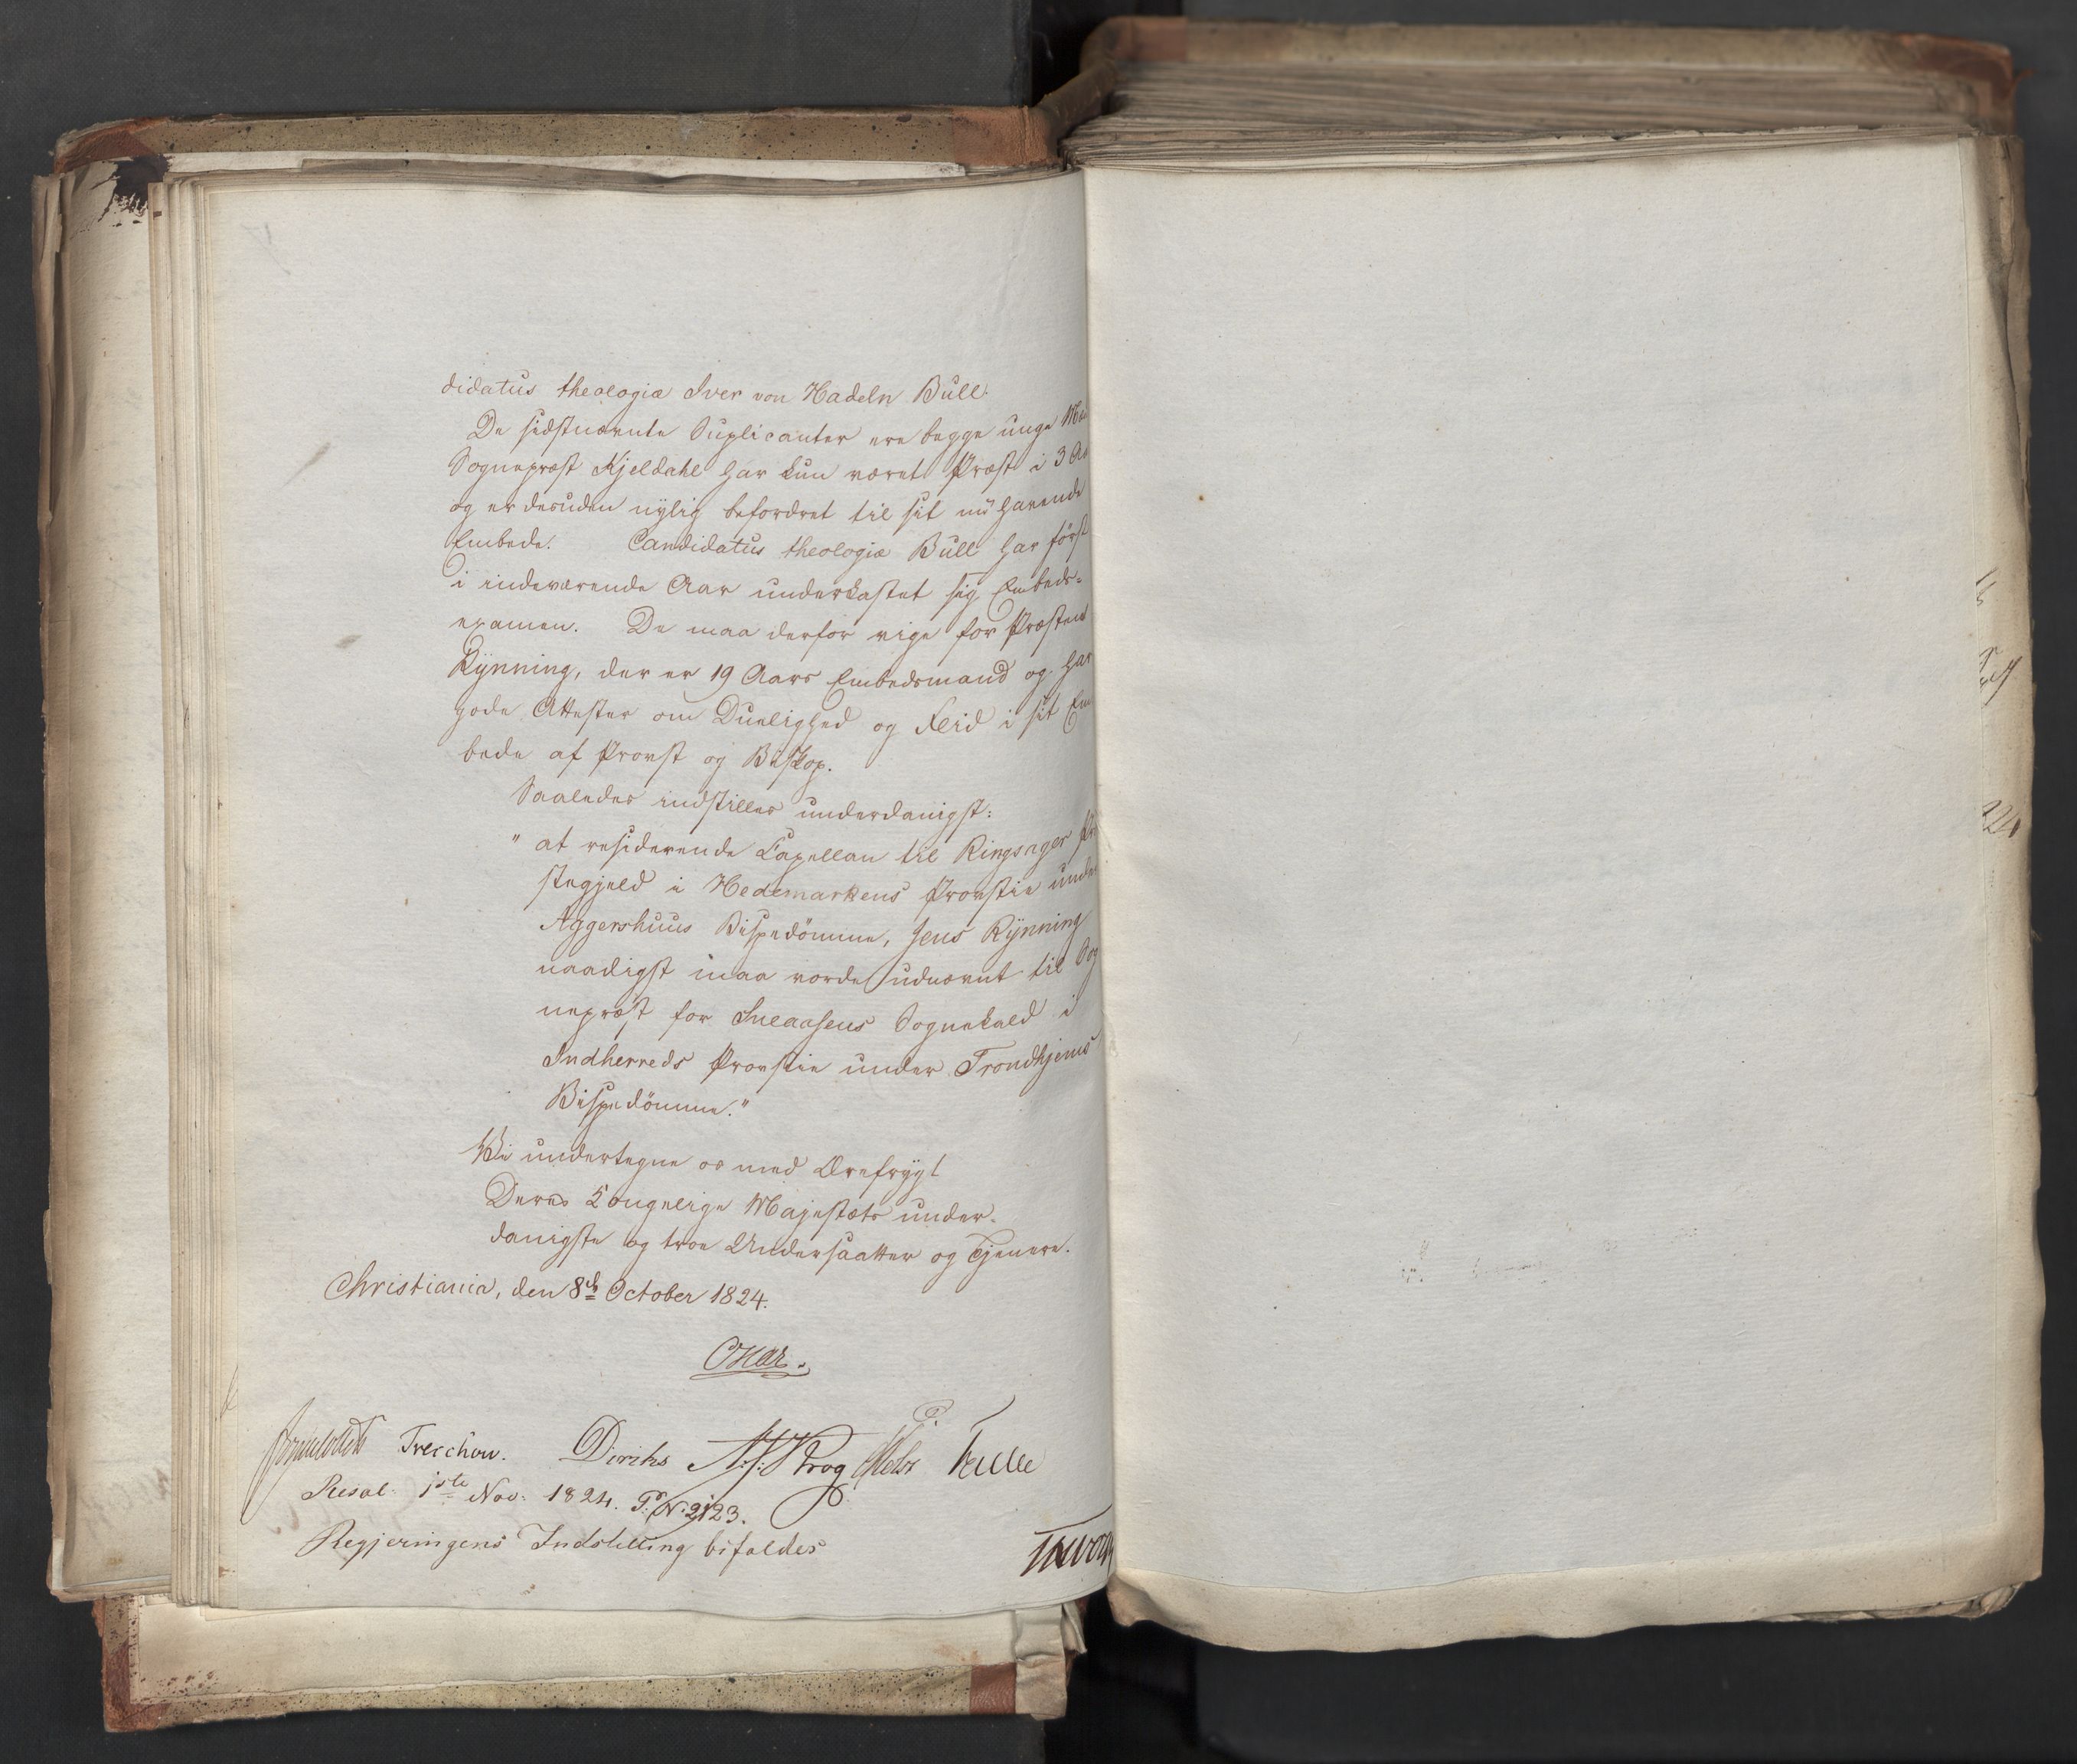 didatus theologiæ Iver von Hadeln Bull.
De sidstnævnte Suplicanter ere begge unge
Sognepræst Kjeldahl har kun været Præst i 3
og er desuden nylig befordret til sit nu havende
Embede. Candidatus theologiæ Bull har först
i indeværende Aar underkastet sig Embeds-
examen. De maa derfor vige for Præsten
Rÿnning, der er 19 Aars Embedsmand og har
gode Attester om Duelighed og Fliid i sit Em
bede af Provst og Biskop.
Saaledes indstilles underdanigst:
" at residerende Capellan til Ringsager Præ
stegjeld i Hedemarkens Provstie under
Aggershuus Bispedömme, Jens Rÿnning
naadigst maa vorde udnævnt til Sog
nepræst for Sneaasens Sognekald i
Indherreds Provstie under Trondhjems
Bispedömme."
Vi undertegne os med Ærefrygt
Deres Kongelige Majestæts under-
danigste og troe Undersaatter og Tjenere.
Christiania, den 8de October 1824.
Treschow. Diriks Krog
Resol: 1ste Nov: 1824. P: N: 2123.
Regjeringens Indstilling bifaldes